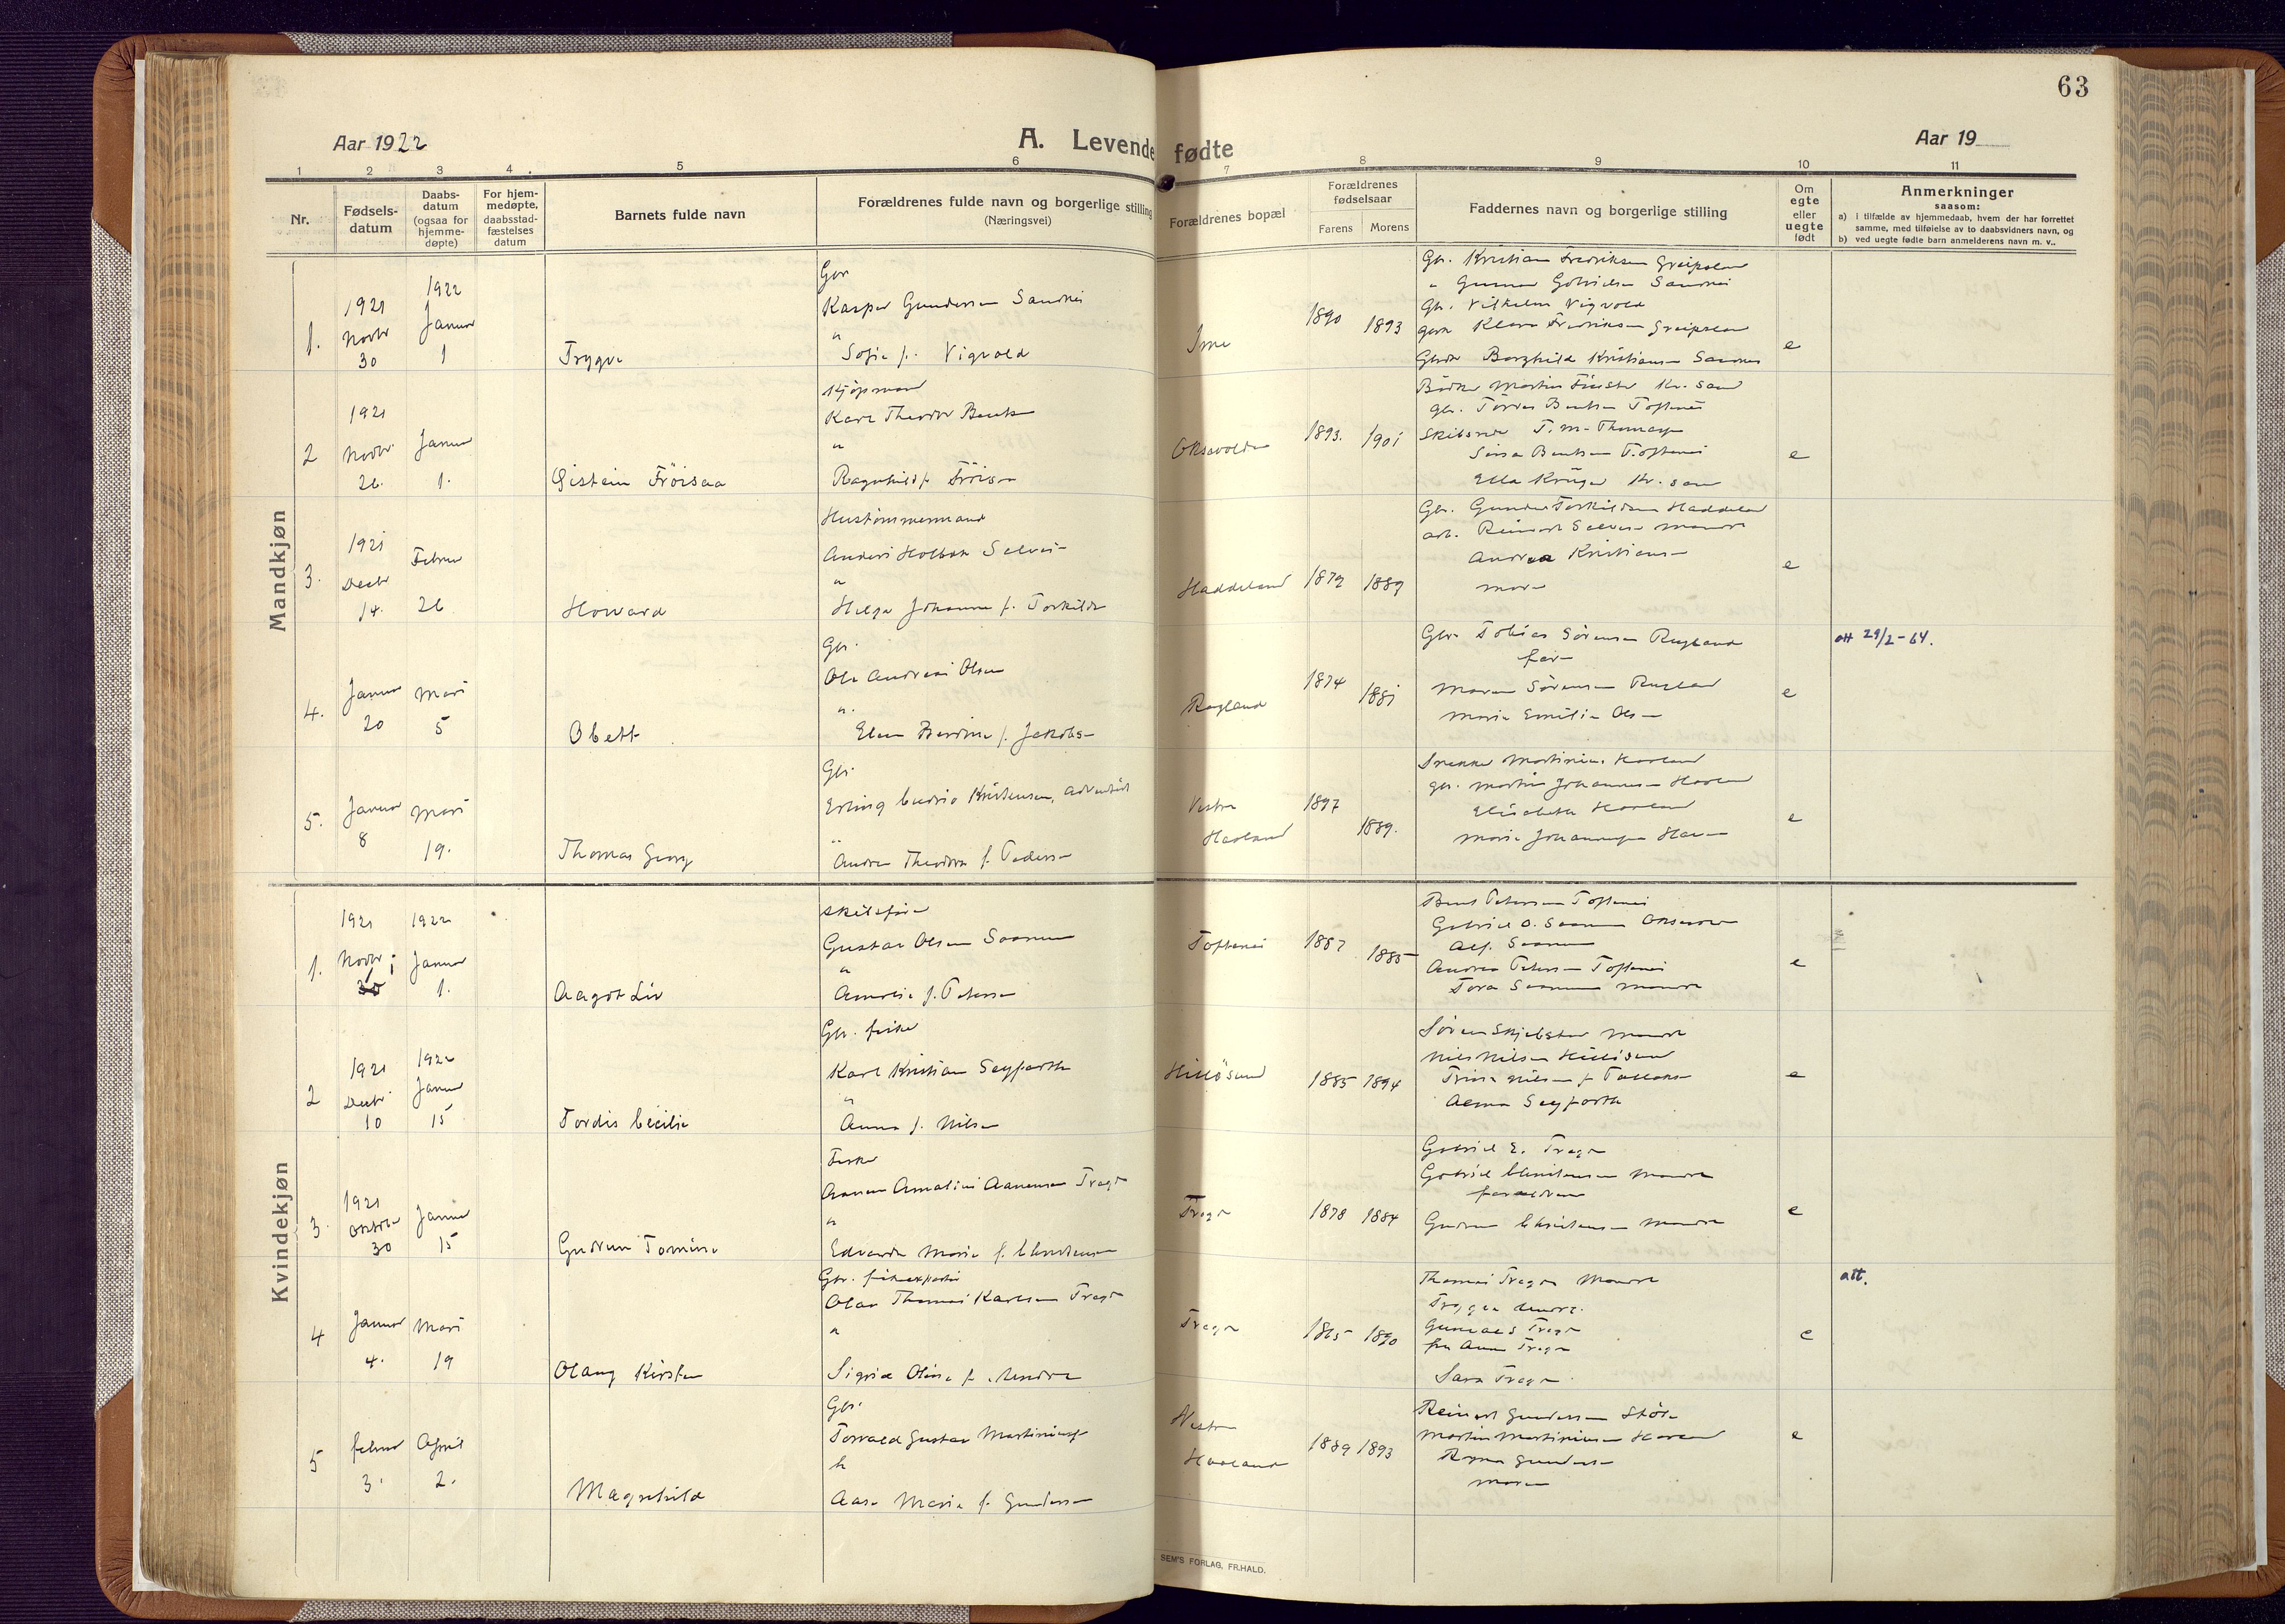 63
Aar 1922
A. Levende fødte
Aar 19
1 2 3 4 5 6 7 8 9 10 11
Nr.
Fødsels-
datum
Daabs-
datum
(ogsaa for
hjemme-
døpte)
For hjem-
medøpte,
daabsstad-
fæstelses
datum
Barnets fulde navn
Forældrenes fulde navn og borgerlige stilling
(Næringsvei)
Forældrenes bopæl
Forældrenes
fødselsaar
Farens Morens
Faddernes navn og borgerlige stilling
Om
egte
eller
uegte
født
Anmerkninger
saasom:
a) i tilfælde av hjemmedaab, hvem der har forrettet
samme, med tilføielse av to daabsvidners navn, og
b) ved uegte fødte barn anmelderens navn m. v..
Mandkjøn
1.
1921
Novbr
30
1922
Januar
1
Trygve
Gbr
Kasper Gundersen Sandnes
"
Sofie f. Vigvold
Ime
1890 1893
Gbr. Kristian Fredriksen Greipsland
" Gunnar Gabrielsen Sandnes
Gbr. Vilhelm Vigvold
Klara Fredriksen Greipsland
Borghild Kristiansen Sandnes
e
2
1921
Novbr.
26.
Januar
1.
Eistein Fröisaa
Kjøpmand
Karl Theodor Bentsen
"
Ragnhild f. Fröisaa
Oksevolden
1893. 1901
Martin Kr. sand
gbr. Bentsen Toftenes
T. M. Thomassen
Bentsen Toftenes
Ella Krüger Kr. sand
e
3.
1921
Decbr
14.
Februar
26
Howard
Hustømmermand
Anders Salvesen
"
Helga Johanne f. Torkildsen
Haddeland
1879 1889
Gbr. Gunder Torkildsen Haddeland
arb. Reinert Salvesen Mandal
Andrea Kristiansen
moren
e
4.
Januar
20
Mars
5
Obett
Gbr.
Ole Andreas Olsen
"
Elen Berdine f. Jakobsen
Rægland
1874 1881
Gbr. Tobias Sørensen Rægland
faren
Maren Sørensen Rægland
Marie Emilie Olsen
e
att 29/2-64.
5.
Januar
8
Mars
19.
Thomas Georg
Gbr.
Erling Kristensen, adventist
"
Andrea Theodora f. Pedersen
Vestre
Haaland
1897
1889.
Snekker Martinius Haaland
gbr. Martin Johannesen Haaland
Elisabeth Haaland
Marie Johannesen Haaland
e
Kvindekjøn
1.
1921
Novbr.
1922
Januar
1.
Aagot Liv
Skibsfører
Gustav Olsen Saanum
"
Amalie f. Petersen
Toftenes
1887 1885
Bent Petersen Toftenes
Gabriel O. Saanum
Alf. Saanum
Andrea Petersen Toftenes
Tora Saanum Mandal
e
2
1921
Decbr.
10
1922
Januar
15
Tordis Cecilie
Gbr. fisker
Karl Kristian Seyffarth
"
Anna f. Nilsen
Hillösund
1885 1894
Sören Skjelstad Mandal
Nils Nilsen Hillösund
Trine Nilsen
Alma Seyffarth
e
3.
1921
Oktober
30
Januar
15
Gudrun Tomine
Fisker
Aanen Amalius Aanensen Tregde
"
Edvarda Marie f. Christensen
Tregde
1878 1884
Gabriel E. Tregde
Gabriel Christensen Mandal
forældrene
Gudrun Christensen Mandal
e
4
Januar
4.
Mars
19
Olaug Kirsten
Gbr. fiskeexportør
Olav Thomas Karlsen Tregde
"
Sigrid Oline f.
Tregde
1885 1890
Thomas Tregde Mandal
Trygve
Tregde
fru Anna Tregde
Sara Tregde.
e
att.
5
februar
3.
April
2.
Magnhild
Gbr.
Torvald Gustav Martiniussen
"
Aase Marie f. Gundersen
Vestre
Haaland
1889 1893
Reinert Gundersen
Martin Martiniussen Haaland
Gundersen
moren
e
SEM'S FORLAG, FR.HALD.